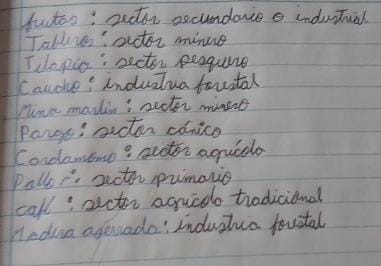 frutas : sector secundario o industrial
Tableros : sector minero
Tilapia : sector pesquero
Caucho : industria forestal
Mina marlin : sector minero
Pargo : sector cánico
Cardamomo : sector agrícola
Pollo : sector primario
café : sector agricola tradicional
Madera aserrada : industria forestal